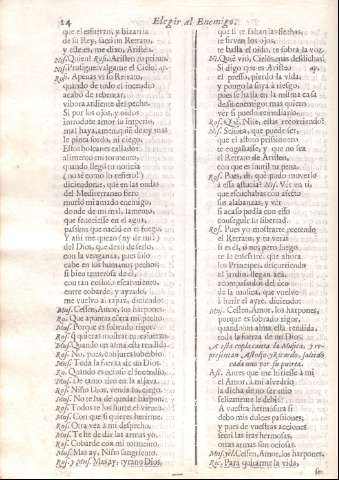 24 Elegir al Enemigo.
que el esfuerço, y bizarria
de su Rey, sacò un Retrato,
y este es, me dixo, Aristeo.
Nis. Quien? Ros. Aristeo
Nis. Prosigue, valgame el Cielo!
Ros. Apenas vi su Retrato,
quando de todo el incendio
acabò de rebentar,
vibora ardiente del pecho.
Si por los ojos, y oìdos
introduce amor su imperio,
mal haya, amen, quien dexa mas
le pinta sordo, ni ciego.
Estos bolcanes callados
alimentò mi tormento,
quando llegò la noticia
( no sè como lo refiero!)
diciendome, que en las ondas
del Mediterraneo fiero
muriò mi amado enemigo,
donde de mi mal, lamento,
que feneciesse en el agua,
passion que naciò en el fuego.
Y assi me quexo (ay de mi!)
del Dios, que diera desprecio,
con la vengança, pues solo
cabe en los humanos pechos:
si bien temerosa de èl,
con tan
entre cobarde, y ayrado,
me vuelvo al rapaz, diciendo:
Mus. Cessen, Amor, los harpones,
Ros. Que apunta contra mi pecho
Mus. Porque es sobrado rigor,
Ros.
Mus. Quando un alma està rendida
Ros. No, pues, con ayre soberbio
Mus. Toda la fuerza de un Dios.
Ros. Quando es ocioso el incendio
Mus. De tanto tiro en la aljava,
Ros. Niño Dios, vendado, ciego,
Mus. No te ha de quedar harpon.
Ros. Todos te los hurte el viento.
Mus. Con que si quieres herirme,
Ros. Otra vez à mi despecho.
Mus. Te he de dar las armas yo.
Ros. Cobarde con mi tormento.
Mus. Mas ay, Niño sangriento.
Ros. y Mus. Mas ay, tyrano Dios,
que si te faltan las flechas,
te sirven los ojos,
te basta el oìdo, te sobra la voz.
Ni. Què viò, Cielos, mas desdichas!
Si digo que es Aristeo ap.
el preso, pierdo la vida;
y pongo la suya à riesgo:
pues se halla en la misma casa
de su enemigo: mas quiero
ver si puedo remediarlo.
Ros. Què, Nise, estàs recorriendo?
Nis. Señora, que puede ser,
que el astuto prisionero
te engañasse, y que no sea
el Retrato de Aristeo,
con que es inutil tu pena.
Ros. Pues, di, què pudo moverlo
à essa astucia? Nis. Ver en ti,
que escuchabas con afecto
sus alabanzas, y ver
si acaso podia con esso
conseguir su libertad.
Ros. Pues yo mostrarte pretendo
el Retrato, y tu veràs
si es èl, ò no; pero luego
te lo enseñarè, que ahora
los Principes, discurriendo
el jardin, llegan acà,
acompañados del eco
de la musica, que vuelve
à herir el ayre, diciendo:
Mus. Cessen, Amor, los harpones,
porque es sobrado rigor,
quando un alma està rendida,
toda la fuerza de un Dios.
A esta copla canta la Musica, y representan Astolfo, y Ricardo, saliendo cada uno por su puerta.
Ast. Antes que me hiriesse à mi
el Amor, à mi alvedrio
la dicha de no ser mio
felizmente le debi!
A vuestra hermosura sì
debo mis dulces passiones,
y pues de vuestras acciones
seràn las iras hermosas,
otras armas son ociosas.
Mus. y èl. Cessen, Amor, los harpones,
Ric. Para quitarme la vida,